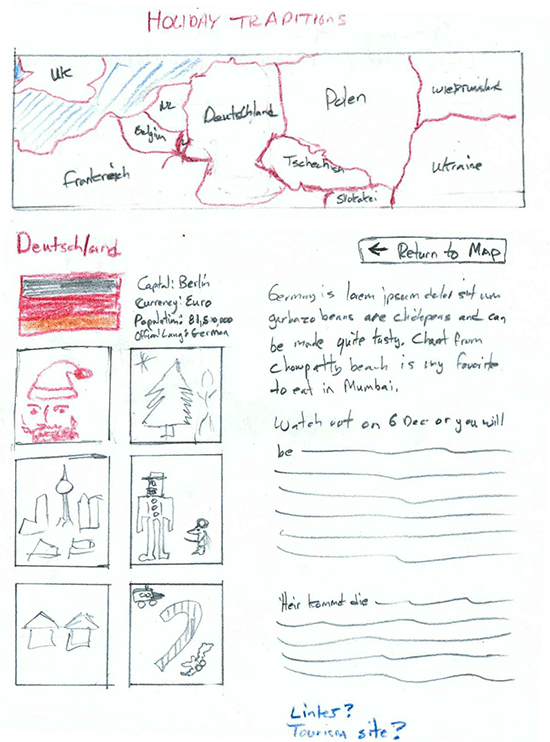 HOLIDAY TRADITIONS
UK
NL
Deutschland
Polen
Belgium
Frankreich
Tschechien
Slovakei
Ukraine
Deutschland
← Return to Map
Capital: Berlin
Currency: Euro
Official Lang: German
German is lorem ipsum dolor sit um
garbazo beans are chickpeas and can
be made quite tasty. Chaat from
Chowpatty beach is my favorite
to eat in Mumbai.
Watch out on 6 Dec or you will
be
Heir kommt die
Links?
Tourism site?